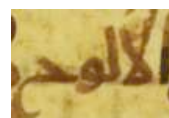 الالوح